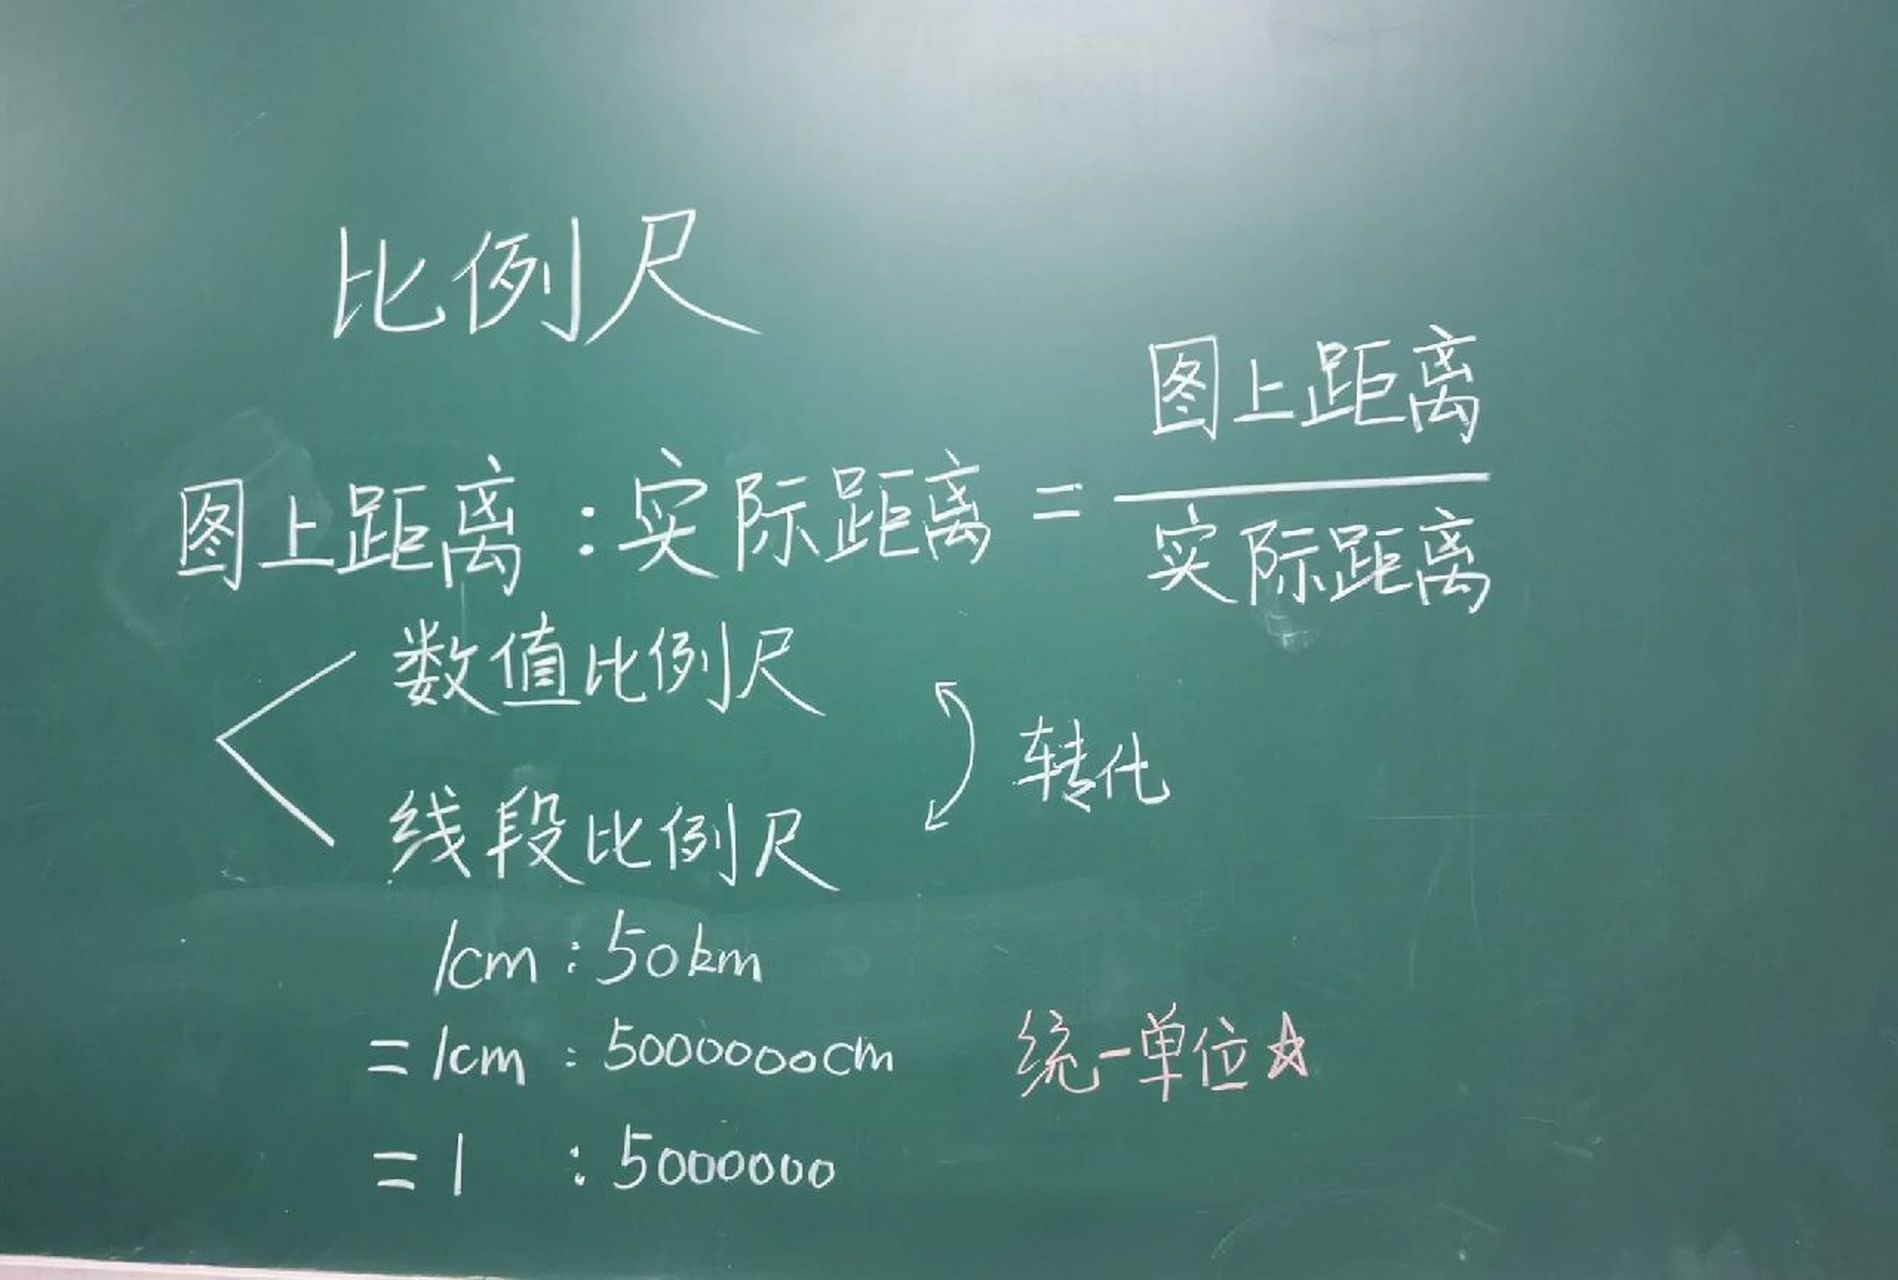 比例尺
图上距离:实际距离=图上距离/实际距离
数值比例尺
线段比例尺
转化
1cm:50km
=1cm:5000000cm
统一单位☆
=1:5000000